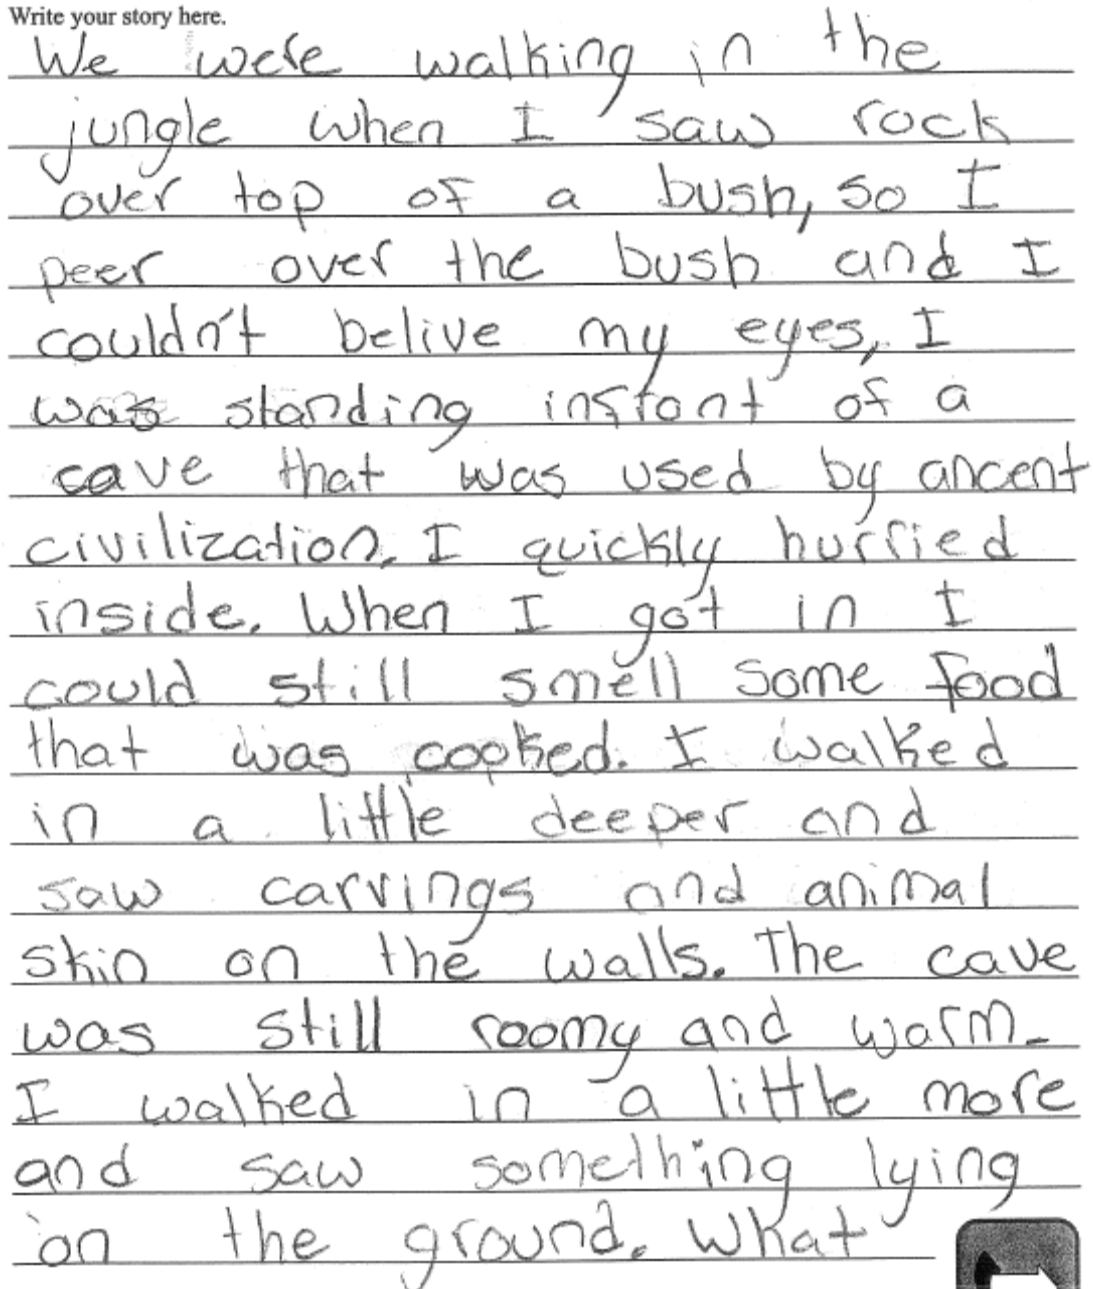 Write your story here.
We were walking in the
jungle when I saw rock
over top of a bush, so I
peer over the bush and I
couldn't belive my eyes, I
was standing infront of a
cave that was used by ancent
civilization. I quickly hurried
inside. When I got in I
could still smell some food
that was cooked. I walked
in a little deeper and
saw carvings and animal
skin on the walls. The cave
was still roomy and warm.
I walked in a little more
and saw something lying
on the ground. What